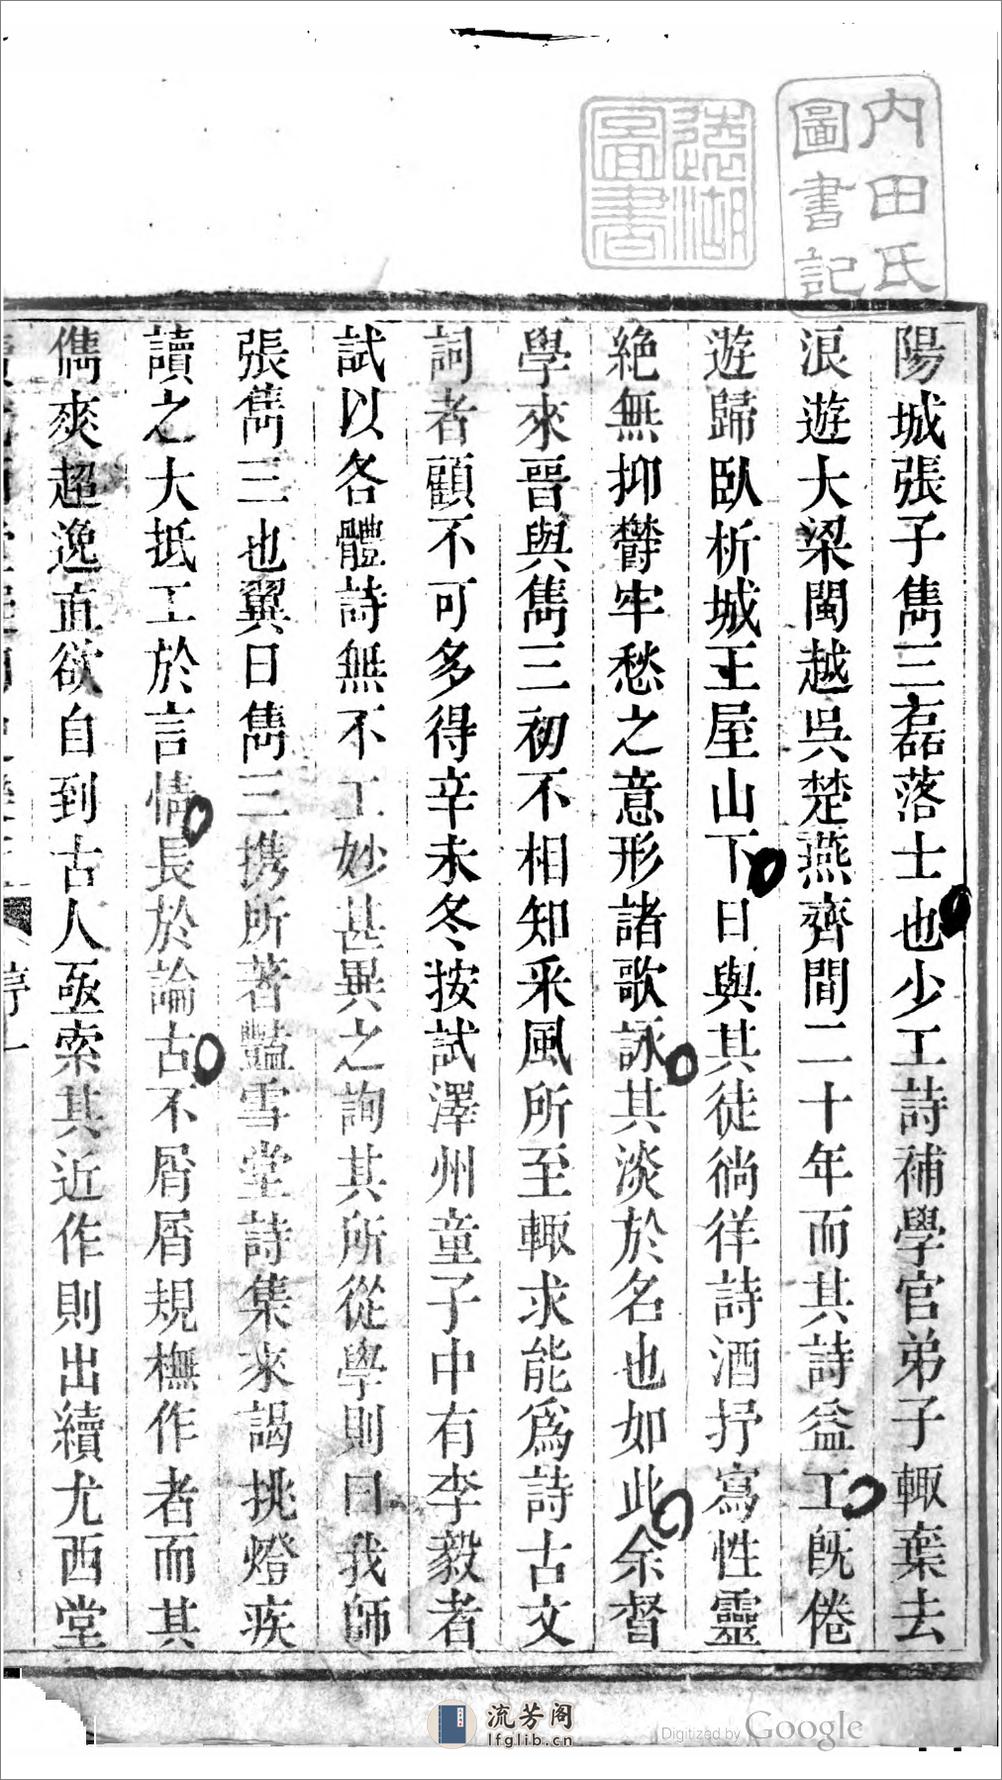 內田氏
圖書記
遠湖
圖書
陽城張子雋三磊落士也少工詩補學官弟子輙棄去
浪遊大梁閩越吳楚燕齊間二十年而其詩益工旣倦
遊歸臥析城王屋山下日與其徒徜徉詩酒抒寫性靈
絕無抑鬱牢愁之意形諸歌詠其淡於名也如此余督
學來晉與雋三初不相知釆風所至輙求能爲詩古文
詞者顧不可多得辛未冬按試澤州童子中有李毅者
試以各體詩無不工妙甚異之詢其所從學則曰我師
張雋三也翼日雋三携所著豔雪堂詩集來謁挑燈疾
讀之大抵工於言情長於論古不屑屑規橅作者而其
儁爽超逸直欲自到古人亟索其近作則出續尤西堂
序
一
流芳阁
lfglib.cn
Digitized by Google